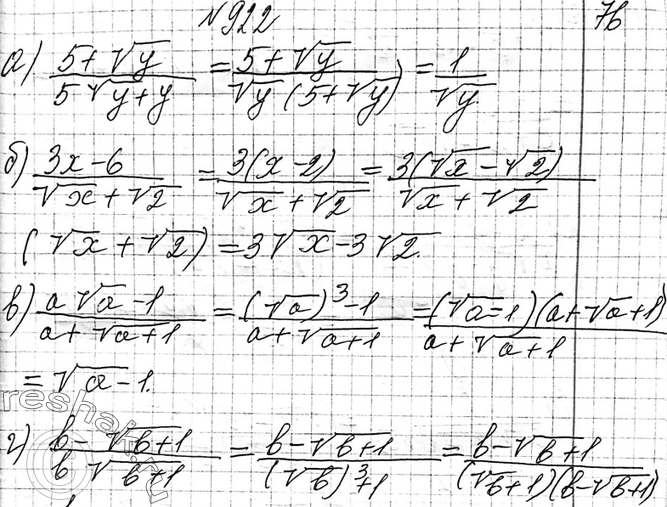 №922 76
а) (5+√y)/(5√y+y) = (5+√y)/(√y(5+√y)) = 1/√y.
б) (3x-6)/(√x+√2) = 3(x-2)/(√x+√2) = 3(√x-√2)/(√x+√2)
(√x+√2) = 3√x-3√2.
в) (a√a-1)/(a+√a+1) = ((√a)³-1)/(a+√a+1) = (√a-1)(a+√a+1)/(a+√a+1)
= √a-1.
г) (b-√b+1)/(b√b+1) = (b-√b+1)/((√b)³+1) = (b-√b+1)/((√b+1)(b-√b+1))
reshak.ru